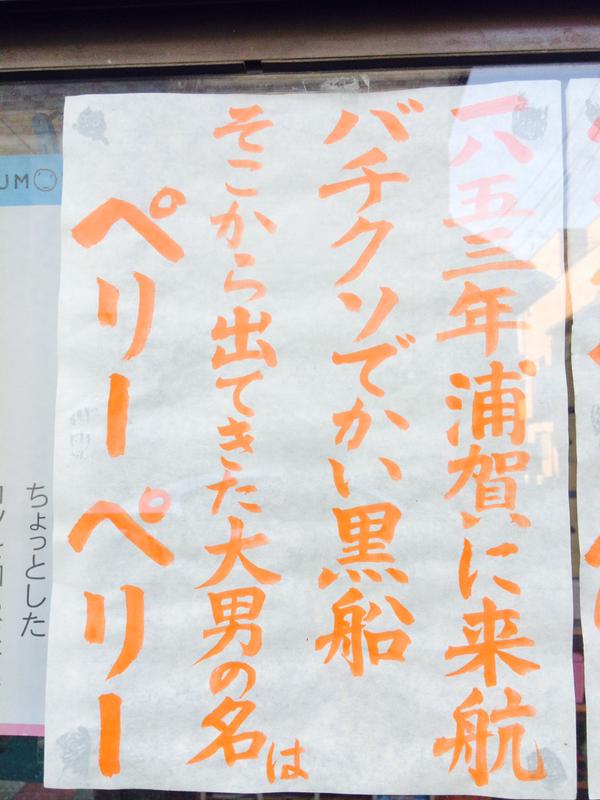 一八五三年浦賀に来航
バチクソでかい黒船
そこから出てきた大男の名は
ペリーペリー
UMO
ちょっとした